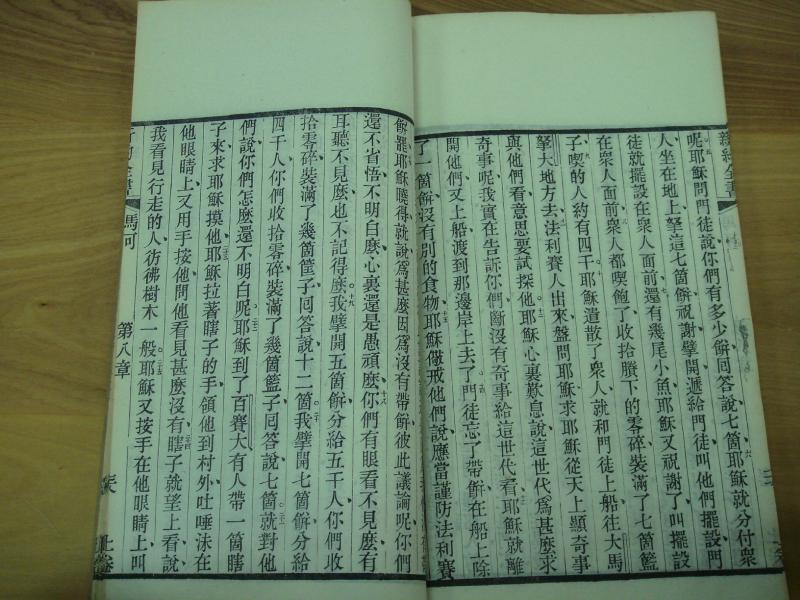 新約全書
呢耶穌問門徒說你們有多少餅回答說七箇耶穌就分付衆
人坐在地上拏這七箇餅祝謝擘開遞給門徒叫他們擺設門
徒就擺設在衆人面前還有幾尾小魚耶穌又祝謝了叫擺設
在衆人面前衆人都喫飽了收拾賸下的零碎裝滿了七箇籃
子喫的人約有四千耶穌遣散了衆人就和門徒上船往大馬
拏大地方去法利賽人出來盤問耶穌求耶穌從天上顯奇事
與他們看意思要試探他耶穌心裏歎息說這世代爲甚麼求
奇事呢我實在告訴你們斷沒有奇事給這世代看耶穌就離
開他們又上船渡到那邊岸上去了門徒忘了帶餅在船上除
了一箇餅沒有別的食物耶穌儆戒他們說應當謹防法利賽
餅罷耶穌曉得就說爲甚麼因爲沒有帶餅彼此議論呢你們
還不省悟不明白麼心裏還是愚頑麼你們有眼看不見麼有
耳聽不見麼也不記得麼我擘開五箇餅分給五千人你們收
拾零碎裝滿了幾箇筐子回答說十二箇我擘開七箇餅分給
四千人你們收拾零碎裝滿了幾箇籃子回答說七箇就對他
們說你們怎麼還不明白呢耶穌到了百賽大有人帶一箇瞎
子來求耶穌摸他耶穌拉著瞎子的手領他到村外吐唾沫在
他眼睛上又用手按他問他看見甚麼沒有瞎子就望上看說
我看見行走的人彷彿樹木一般耶穌又按手在他眼睛上叫
馬可 第八章